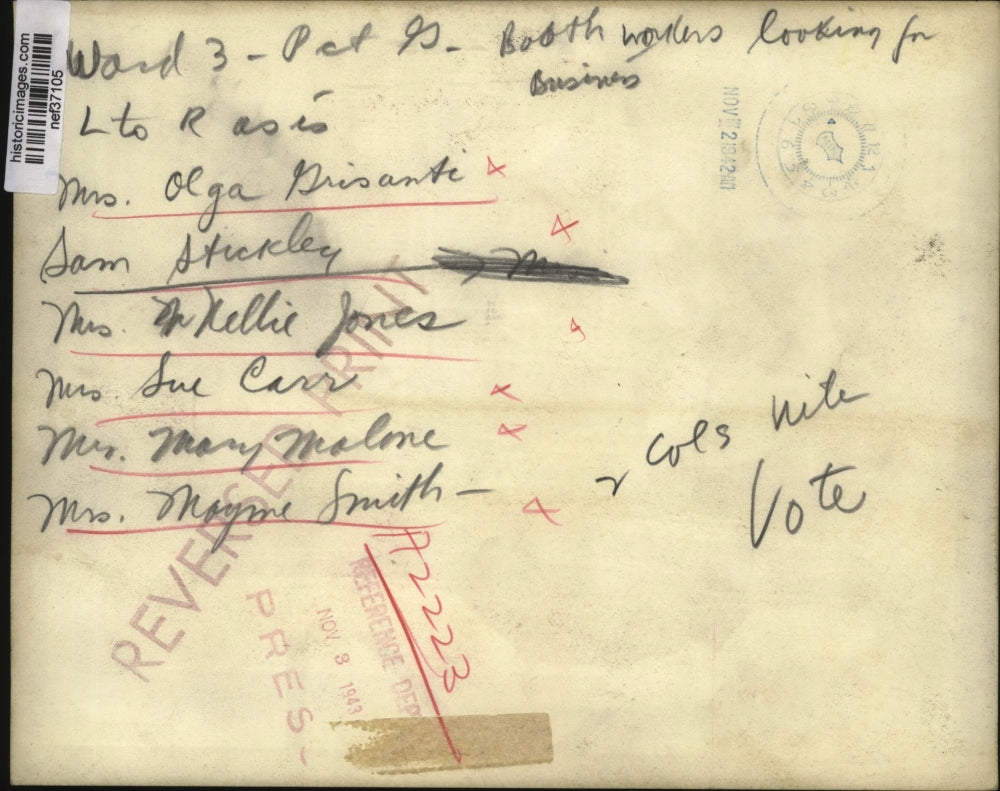 historicimages.com
nef37105
Ward 3 - Pct G - Booth workers looking for
Business
L to R as is
Mrs. Olga Grisanti x
Sam Stickley x
Mrs. Nellie Jones
Mrs Sue Carr x
Mrs. Mary Malone x
Mrs. Mayme Smith - x
2 cols nite
Vote
A2223
NOV 2 1942
REVERSED PRINT
PRES-
REFERENCE DEP
NOV 3 1943